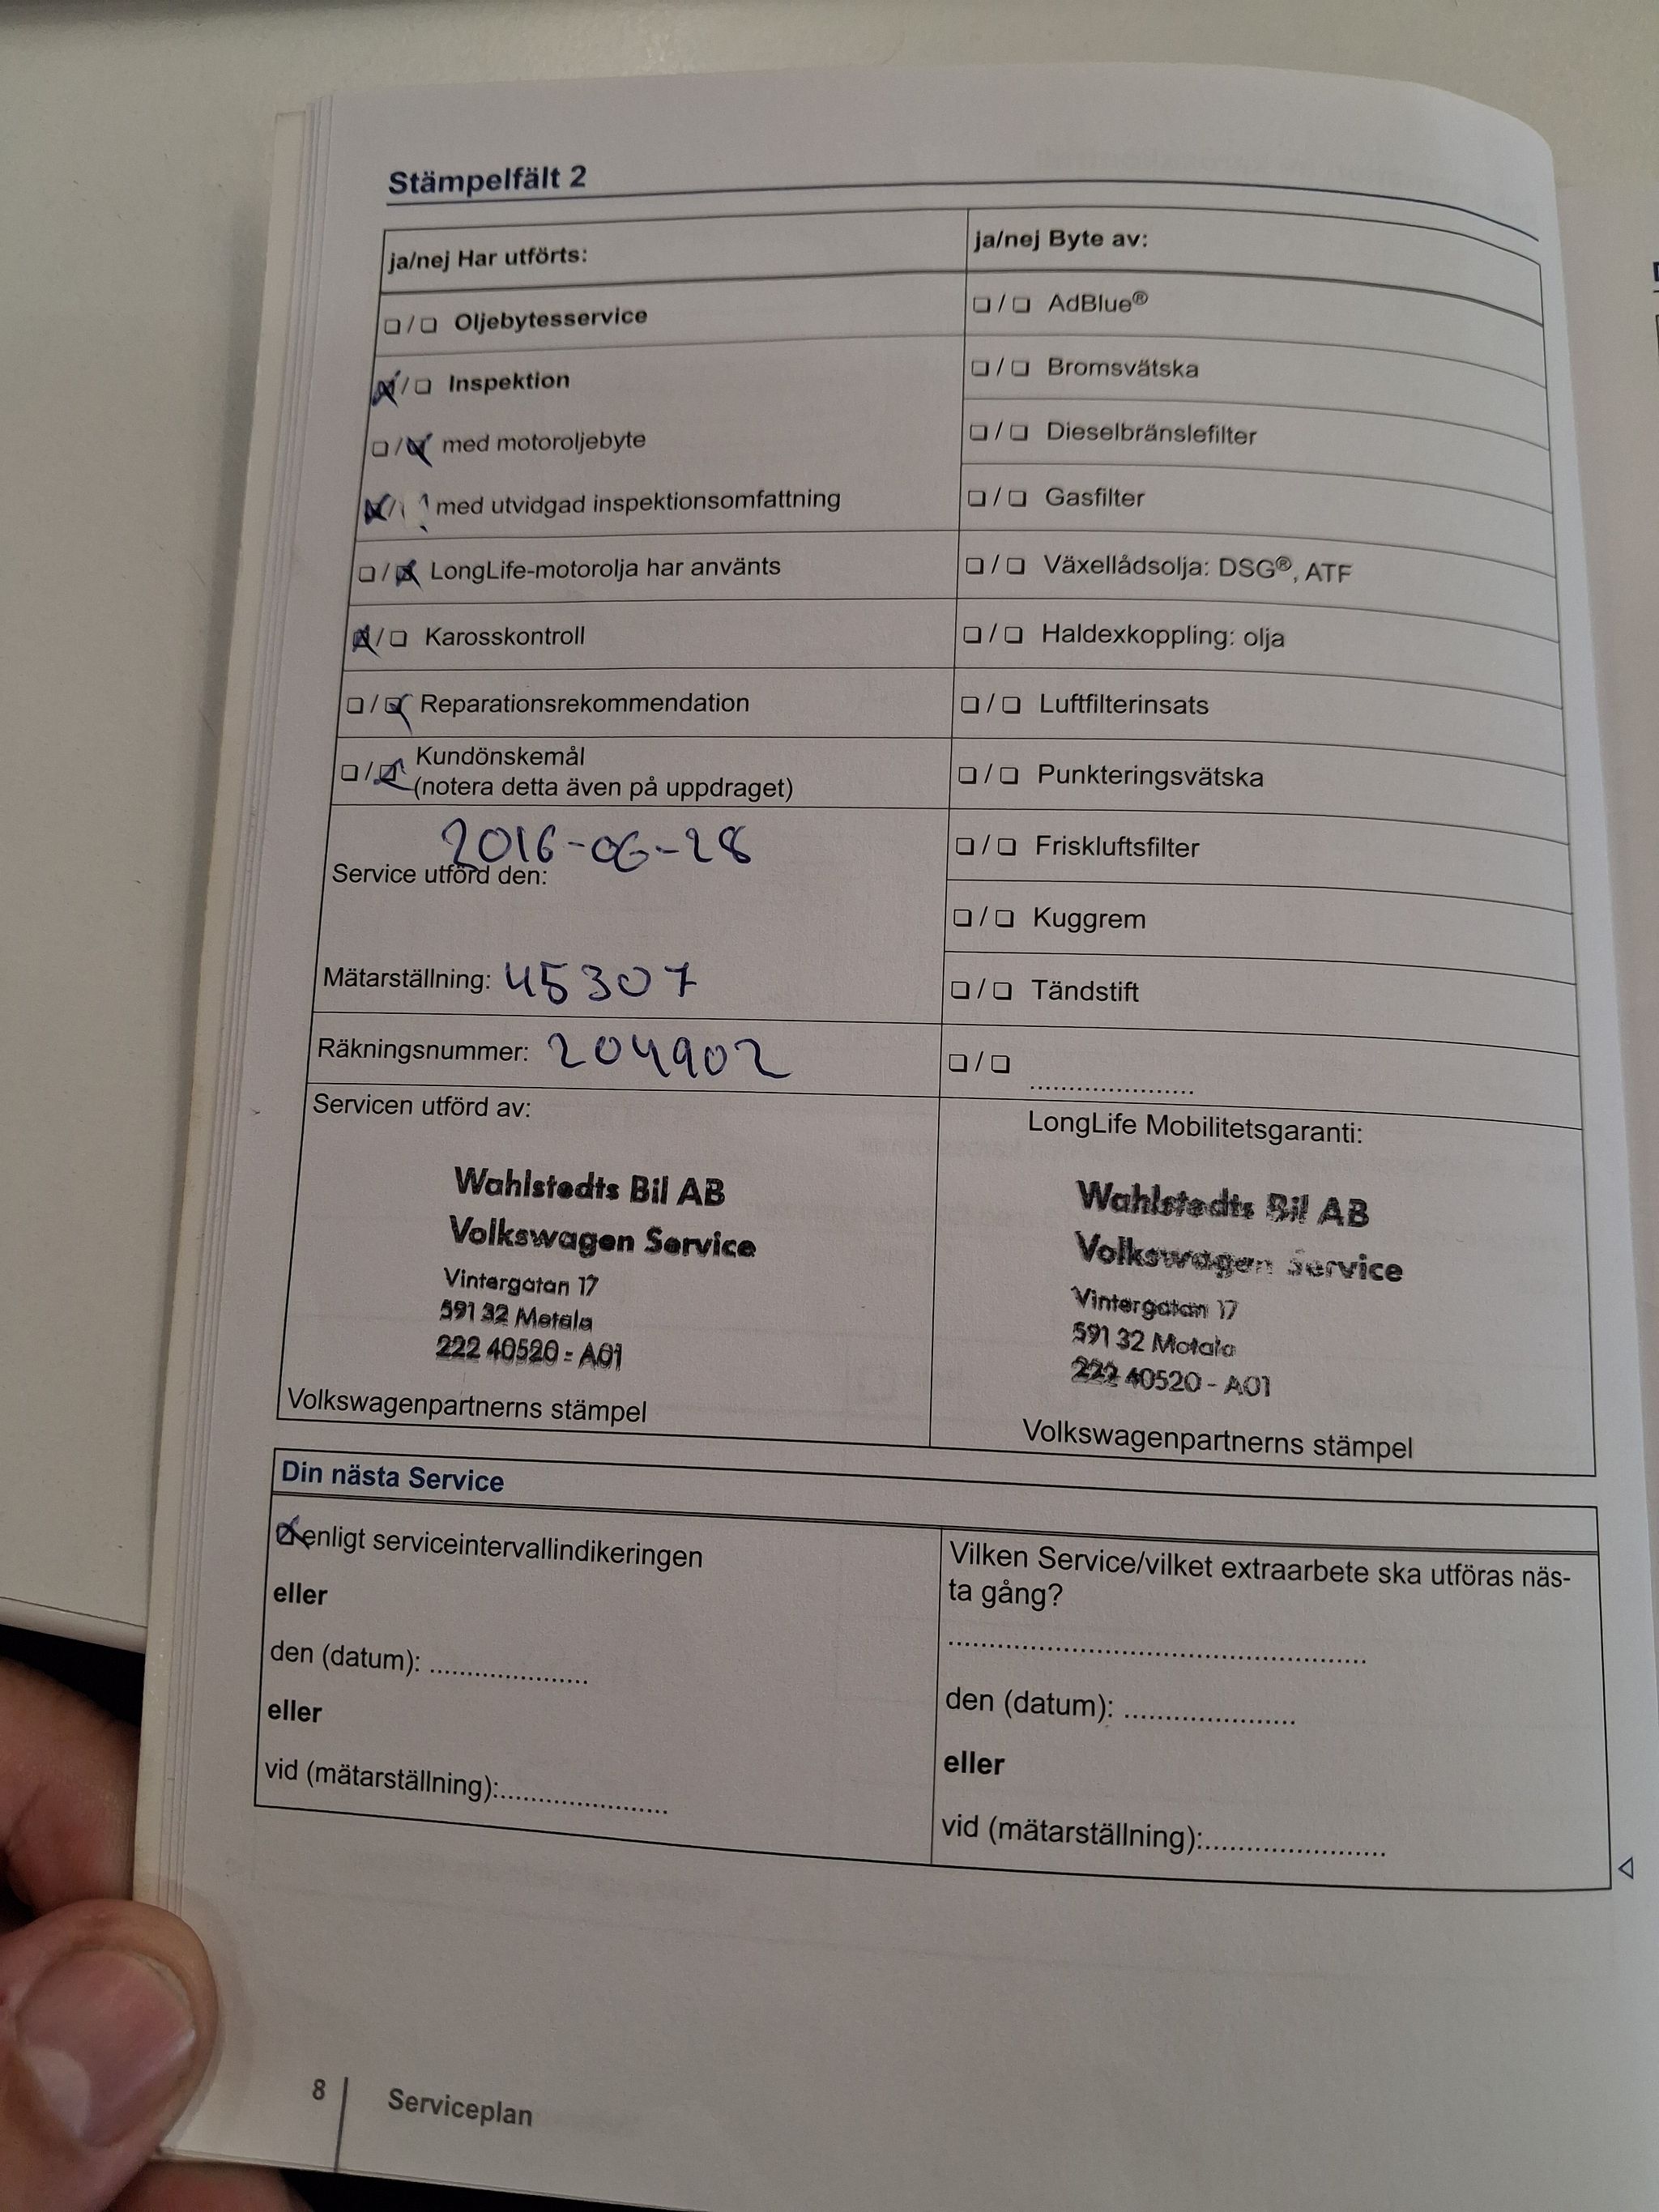 Stämpelfält 2
ja/nej Har utförts:
❏ / ❏ Oljebytesservice
☒ / ❏ Inspektion
❏ / ☒ med motoroljebyte
☒ / med utvidgad inspektionsomfattning
❏ / ☒ LongLife-motorolja har använts
☒ / ❏ Karosskontroll
❏ / ☒ Reparationsrekommendation
❏ / ☒ Kundönskemål
(notera detta även på uppdraget)
2016-06-28
Service utförd den:
Mätarställning: 45307
Räkningsnummer: 204902
Servicen utförd av:
Wahlstedts Bil AB
Volkswagen Service
Vintergatan 17
591 32 Motala
222 40520 - A01
Volkswagenpartnerns stämpel
ja/nej Byte av:
❏ / ❏ AdBlue®
❏ / ❏ Bromsvätska
❏ / ❏ Dieselbränslefilter
❏ / ❏ Gasfilter
❏ / ❏ Växellådsolja: DSG®, ATF
❏ / ❏ Haldexkoppling: olja
❏ / ❏ Luftfilterinsats
❏ / ❏ Punkteringsvätska
❏ / ❏ Friskluftsfilter
❏ / ❏ Kuggrem
❏ / ❏ Tändstift
❏ / ❏ .....................
LongLife Mobilitetsgaranti:
Wahlstedts Bil AB
Volkswagen Service
Vintergatan 17
591 32 Motala
222 40520 - A01
Volkswagenpartnerns stämpel
Din nästa Service
☒ enligt serviceintervallindikeringen
eller
den (datum): .....................
eller
vid (mätarställning):......................
Vilken Service/vilket extraarbete ska utföras näs-
ta gång?
.......................................................
den (datum): ......................
eller
vid (mätarställning):........................
8 Serviceplan